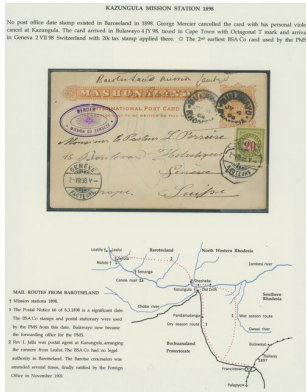 KAZUNGULA MISSION STATION 1898
No post office date stamp existed in Barotseland in 1898. George Mercier cancelled the card with his personal violet
cancel at Kazungula. The card arrived in Bulawayo 4 JY 98, taxed in Cape Town with Octagonal T mark and arrival
in Geneva 2 VII 98 Switzerland with 20c tax stamp applied there. The 2nd earliest BSA Co card used by the PMS.
Barotseland mission Zambèze
MASHONALAND
INTERNATIONAL POST CARD
BULAWAYO
RHODESIA
MERCIER
MISSION DU ZAMBÈZE
Monsieur le Pasteur
15 Boulevard Helvétique
Genève
Europe
Suisse
GENEVE
20
MAIL ROUTES FROM BAROTSELAND
† Mission stations 1898.
1 The Postal Notes tit of 6.5.1898 is a significant date.
The BSA Co stamps and postal stationery were used
by the PMS from this date. Bulawayo now became
the forwarding office for the PMS.
2 Rev L Jalla was postal agent at Kazungula, arranging
the runners from Lealui. The BSA Co had no legal
authority in Barotseland. The Barotse concession was
extended several times, finally ratified by the Foreign
Office in November 1901
Lealui
Barotseland
North Western Rhodesia
Nalolo
Senanga
Canoe mail
Zambezi river
Sesheke
Kazungula
Old Drift
Southern
Rhodesia
Chobe river
Pandamatenga
Dry season route
Wet season route
Gwaai river
Bechuanaland
Protectorate
Bulawayo
Railway
1897
Francistown
Palapye